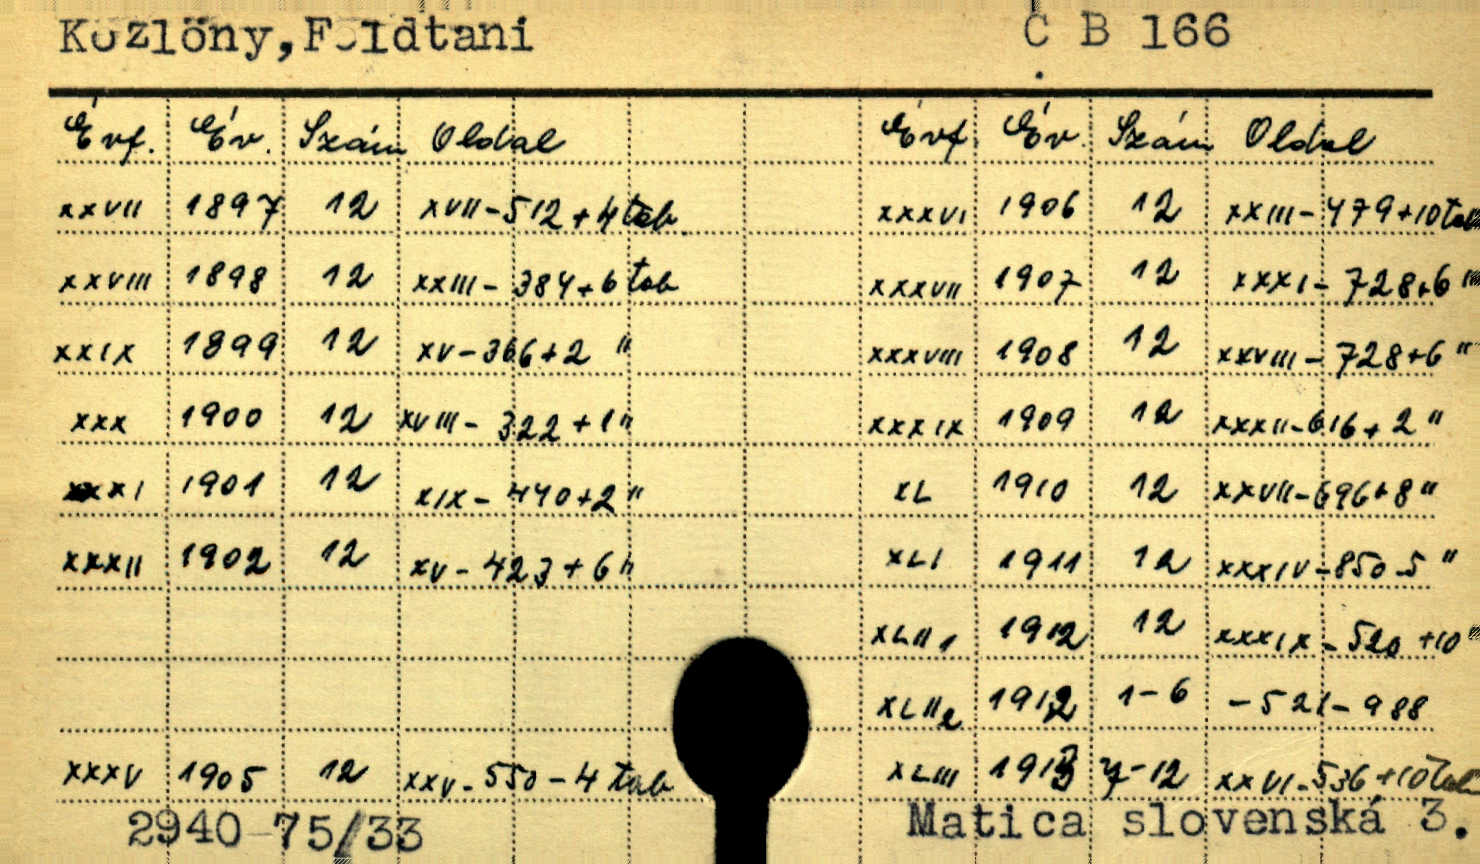 Közlöny,Földtani C B 166
Évf. Év. Szám Oldal Évf. Év. Szám Oldal
XXVII 1897 12 XVII-512+4 tab. XXXVI 1906 12 XXIII-479+10 tab
XXVIII 1898 12 XXIII-384+6 tab XXXVII 1907 12 XXXI-728+6 "
XXIX 1899 12 XV-366+2 " XXXVIII 1908 12 XXVIII-728+6 "
XXX 1900 12 XVIII-322+1 " XXXIX 1909 12 XXXII-616+2 "
XXXI 1901 12 XIX-440+2 " XL 1910 12 XXVII-696+8 "
XXXII 1902 12 XV-423+6 " XLI 1911 12 XXXIV-850-5 "
XLII1 1912 12 XXXIX-520+10 "
XLII2 1912 1-6 -521-988
XXXV 1905 12 XXV-550-4 tab XLIII 1913 7-12 XXVI-536+10 tab
2940-75/33 Matica slovenská 3.